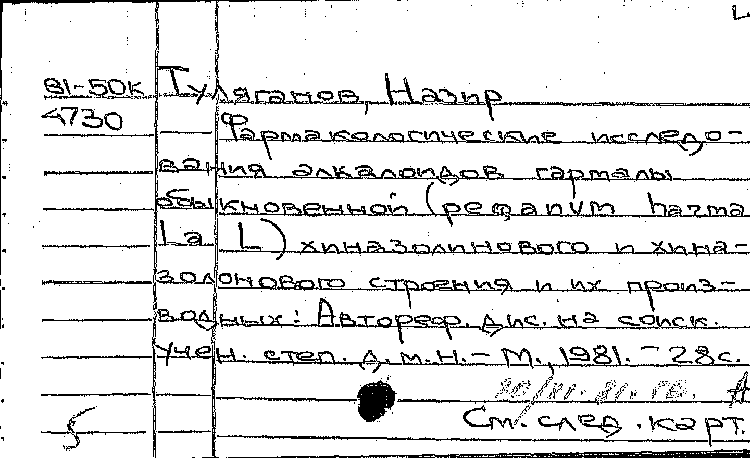 81-50К Туляганов, Назир
4730 Фармакологические исследо-
вания алкалоидов гармалы
обыкновенной (peganum harma
la L) хиназолинового и хина-
золонового строения и их произ-
водных: Автореф. дис. на соиск.
учен. степ. д.м.н. - М., 1981. - 28с.
См. след. карт.